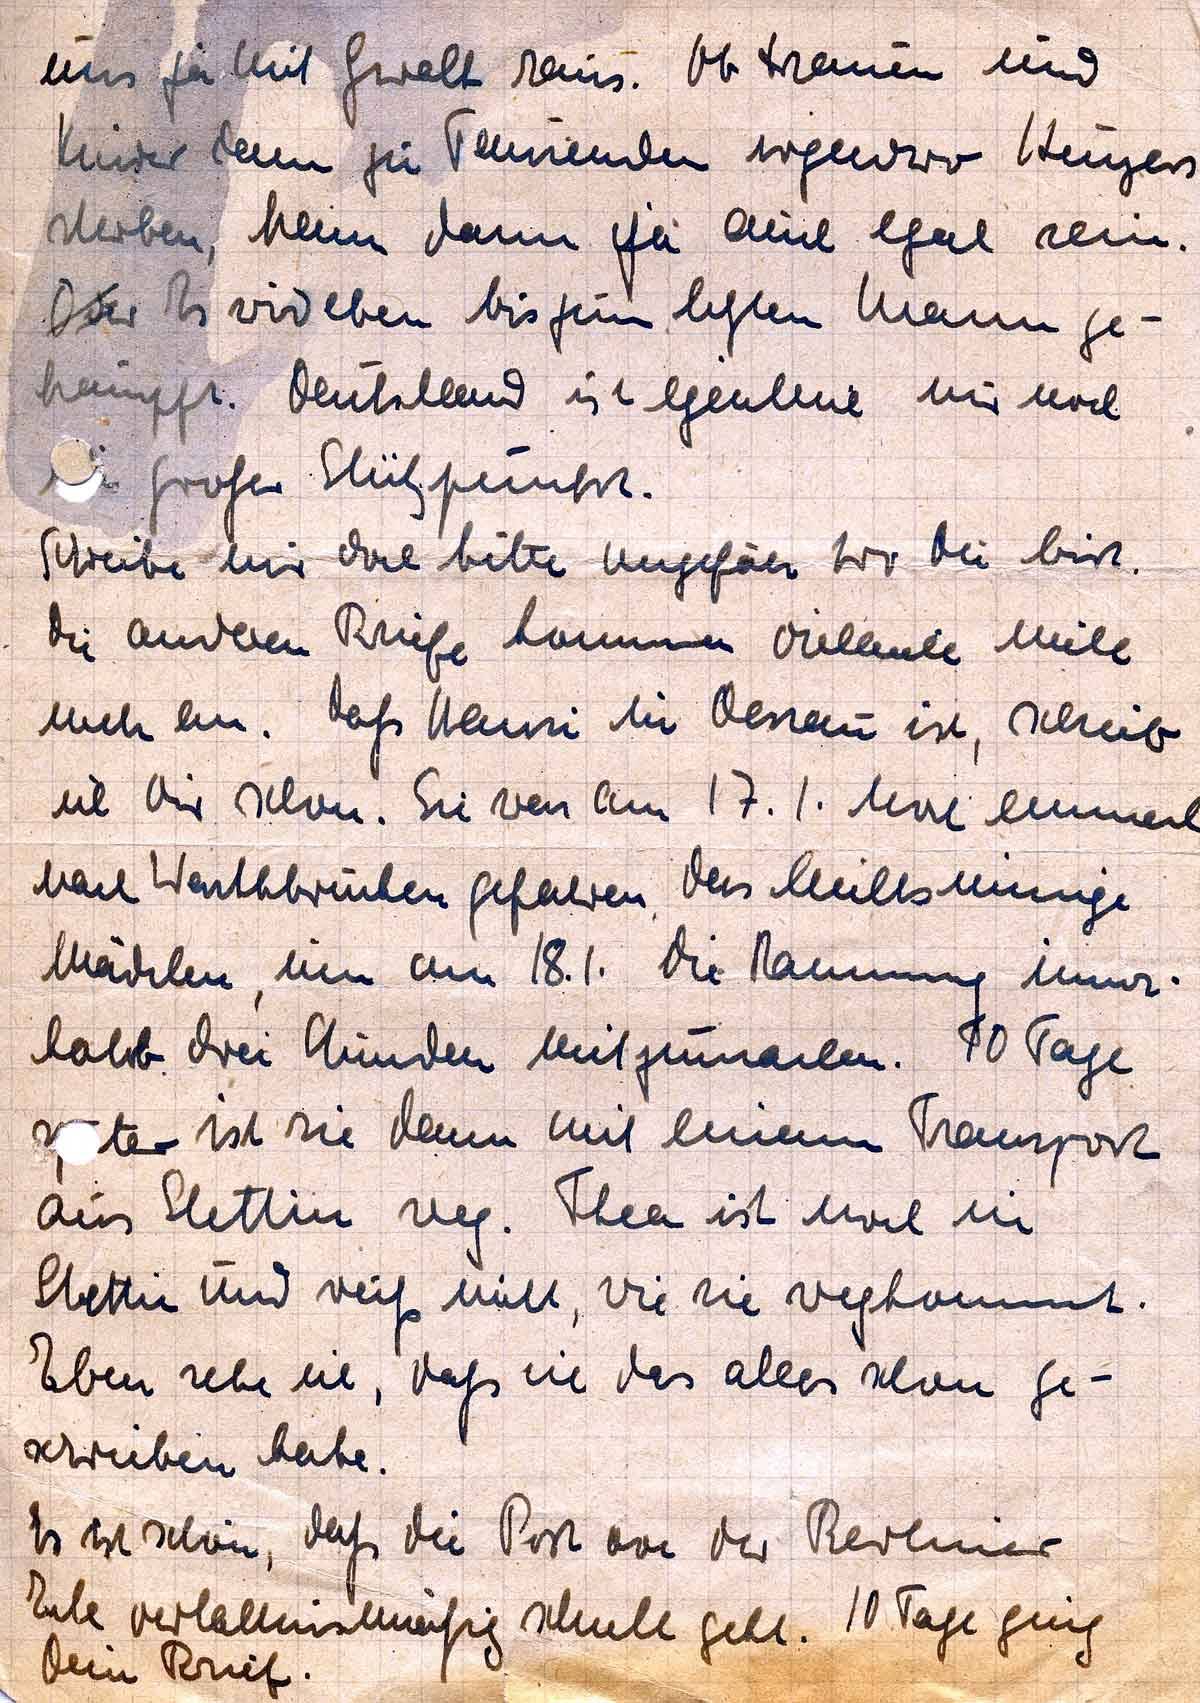 uns ja mit Gewalt raus. Ob Frauen und
Kinder dann zu Tausenden irgendwo Hungers
sterben, kann dann ja auch egal sein.
Es wird eben bis zum letzten Mann ge-
kämpft. Deutschland ist eigentlich nur noch
ein großer Stützpunkt.
Schreibe mir doch bitte ungefähr wo Du bist.
Die anderen Briefe kommen vielleicht
noch an. Daß Hansi in Dessau ist, schrieb
ich Dir schon. Sie war am 17.1. noch einmal
nach Warthbrücken gefahren, das
Mädchen, um am 18.1. die Räumung inner-
halb drei Stunden mitzumachen. 10 Tage
später ist sie dann mit einem Transport
aus Stettin weg. Thea ist noch in
Stettin und weiß nicht, wie sie wegkommt.
Eben sehe ich, daß ich das alles schon ge-
schrieben habe.
Es ist schön, daß die Post aus der Berliner
Ecke verhältnismäßig schnell geht. 10 Tage ging
Dein Brief.